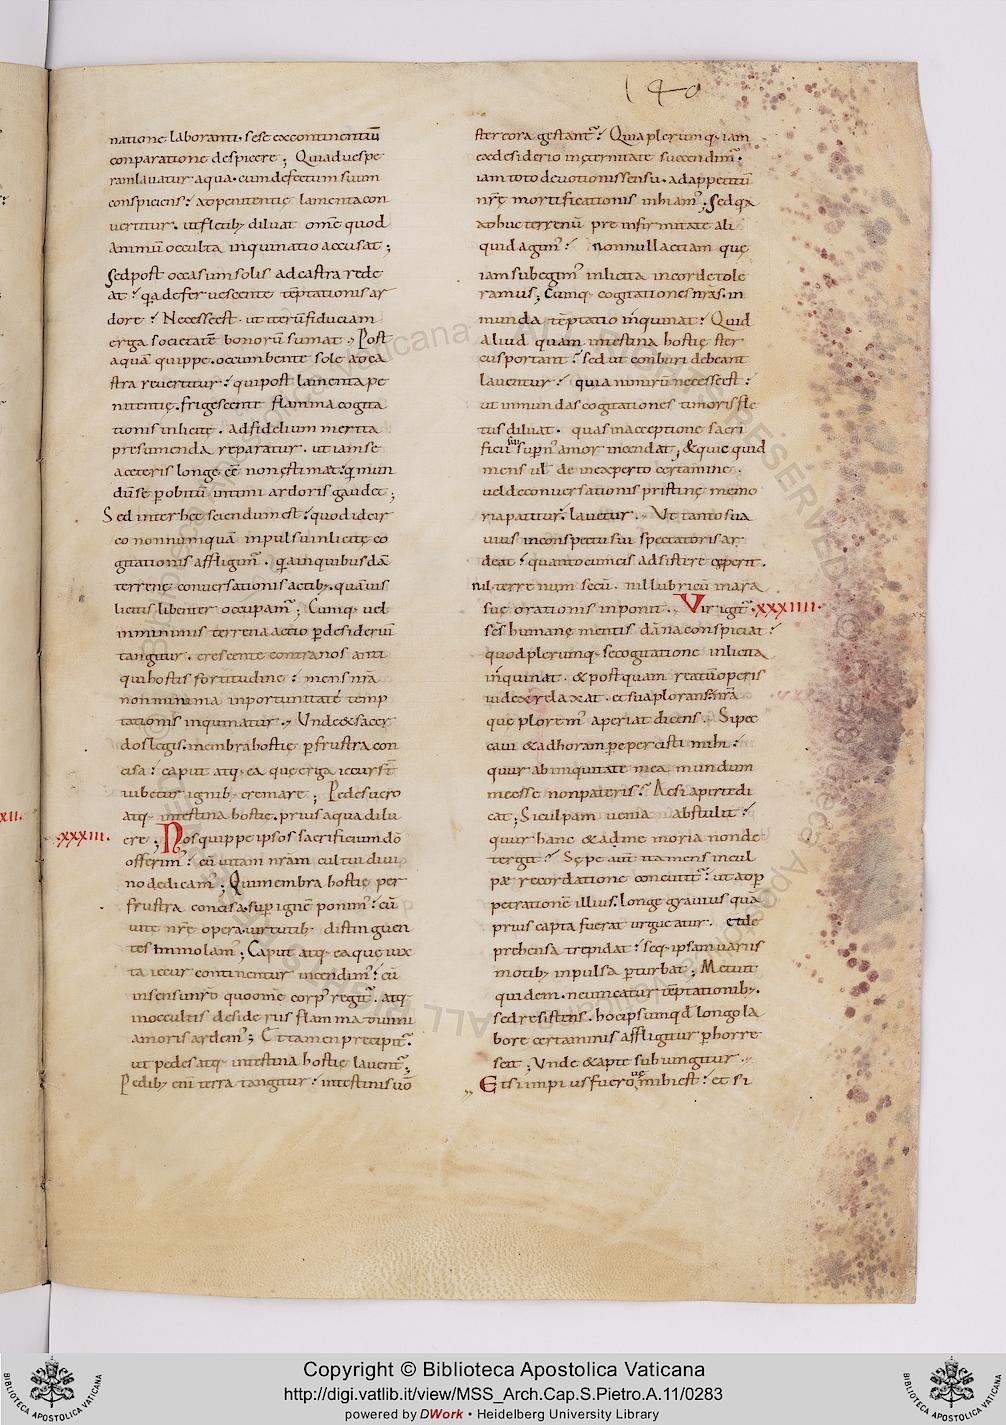 140
natione laboranti· sese ex continentiū
conparatione despicere; Quia d uespe
ram lauatur aqua· cum defectum suum
conspiciens: ad penitentię lamenta con
uertitur· ut fletib; diluat om̄e quod
animū occulta inquinatio accusat;
Sed post occasum solis ad castra rede
at: qa deferuescente tēptationis ar
dore: Necesse est· ut iterū fiduciam
erga societatē bonorū sumat· Post
aquā quippe· occumbente sole ad ca
stra reuertitur: qui post lamenta pe
nitentię· frigescente flamma cogita
tionis inlicitę· ad fidelium merita
presumenda reparatur· ut iam se
a ceteris longe eē non estimat: q mun
dū se p obitū intimi ardoris gaudet;
Sed inter hęc sciendum est: quod idcir
co nonnumquā inpulsu inlicitę co
gitationis affligim᾽· q a in quibusdā
terrenę conuersationis actib; quāuis
licitis libenter occupam᾽; Cumq· uel
in minimis terrena actio p desideriū
tangitur· crescente contra nos anti
qui hostis fortitudine: mens nrā
non minima inportunitate temp
tationis inquinatur· Unde & sacer
dos legis· membra hostię p frustra con
cisa: caput atq· ea quę erga iecur s̄t
iubetur ignib· cremare; Pedes uero
atq· intestina hostię· prius aqua dilu
·XXXIII· ere; Nos quippe ipsos sacrificium dō
offerim᾽: cū uitam nrām cultui diui
no dedicam᾽; Qui membra hostię per
frustra concisa· sup ignē ponim᾽: cū
uitę nrę opera· uirtutib; distinguen
tes immolam᾽; Caput atq· ea quę iux
ta iecur continentur incendim᾽: cū
in sensu nrō quo om̄e corp᾽ regit᾽· atq
in occultis desideriis flamma diuini
amoris ardem᾽; Et tamen precipit᾽·
ut pedes atq· intestina hostię lauent᾽;
Pedib; eni terra tangitur: intestinis uō
stercora gestant᾽: Quia plerumq· iam
ex desiderio in ęternitate succendim᾽·
iam toto deuotionis sensu· ad appetitū
nrę mortificationis inhiam᾽; Sed qa
adhuc terrenū pre infirmitate ali
quid agim᾽: nonnulla etiam quę
iam subegim᾽ inlicita in corde tole
ramus; Cumq· cogitationes nrās· in
munda tēptatio inquinat: Quid
aliud quam intestina hostię ster
cus portant: sed ut conburi debeant
lauentur: quia nimirū necesse est:
ut inmundas cogitationes timoris fle
tus diluat· quas in acceptione sacri
ficii supn᾽ amor incendat; & quicquid
mens ul de inexperto certamine·
uel de conuersationis pristinę memo
ria patitur· lauetur· Ut tanto sua
uius in conspectu sui spectatoris ar
deat: quanto cum ei adsistere ceperit·
nil terrenum secū· nil lubricū in ara
suę orationis inponit· Vir igit᾽ ·XXXIIII·
scs̄ humanę mentis dāna conspiciat:
quod plerumq· se cogitatione inlicita
inquinat· & postquam reatū operis
iudex relaxat· et sua plorans· nrā
que plorem᾽ aperiat dicens· Si pec
caui & ad horam pepercisti mihi:
quur ab iniquitate mea mundum
me esse non pateris: Ac si aperte di
cat; Si culpam uenia abstulit:
quur hanc & ad me moria non de
tergit: Sępe aut ita mens in cul
pae recordatione concutit᾽: ut ad p
petrationē illius· longe grauius quā
prius capta fuerat urgueatur· et de
prehensa trepidat: seq· ipsam uariis
motib; inpulsa pturbat; Metuit
quidem· ne uincatur tēptationib;·
sed resistens· hoc ipsum qd longo la
bore certaminis affligitur phorre
scit; Unde & apte subiungitur·
Et si impius fuero uę mihi est: et si
XII·
Copyright © Biblioteca Apostolica Vaticana
http://digi.vatlib.it/view/MSS_Arch.Cap.S.Pietro.A.11/0283
powered by DWork • Heidelberg University Library
BIBLIOTECA APOSTOLICA VATICANA
BIBLIOTECA APOSTOLICA VATICANA